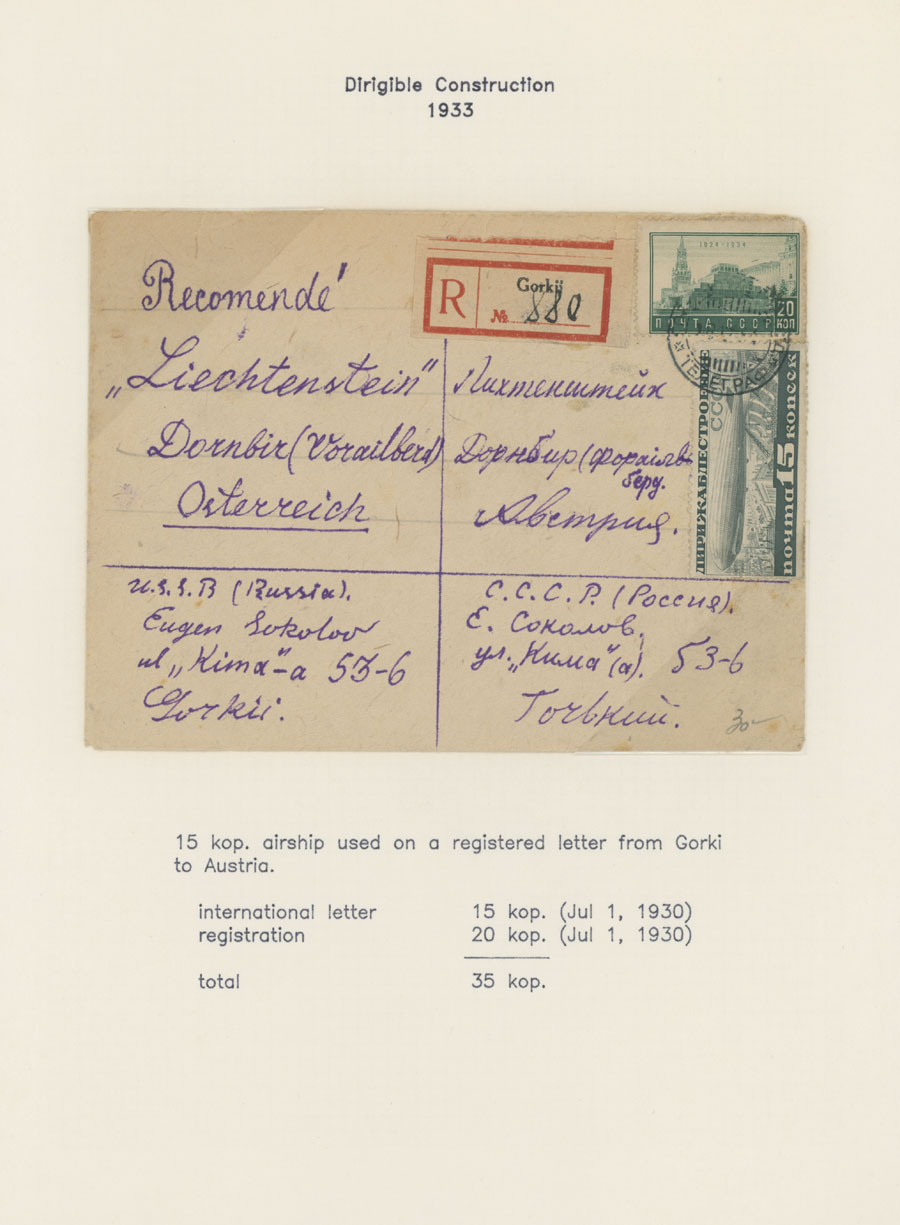 Dirigible Construction
1933
Recomendé
R
Gorkij
№ 880
1924-1934
20
ПОЧТА СССР КОП
ТЕЛЕГРАФ
ДИРИЖАБЛЕСТРОЕНИЕ
СССР
почта 15 копеек
„Liechtenstein"
Dornbir (Vorailberd)
Österreich
Лихтенштейн
Дорнбир (Фораіль-
берд.
Австрия.
U.S.S.R (Russia).
Eugen Sokolov
ul „Kima"-a 53-6
Gorkii.
С.С.С.Р. (Россия).
Е. Соколов.
ул. „Кима" (а). 53-6
Горький.
30-
15 kop. airship used on a registered letter from Gorki
to Austria.
international letter 15 kop. (Jul 1, 1930)
registration 20 kop. (Jul 1, 1930)
total 35 kop.